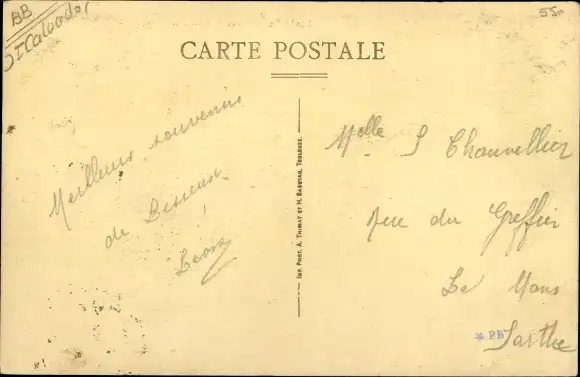 BB
Calvados
55
CARTE POSTALE
Meilleurs souvenirs
de
Léon
IMP. PHOT. A. THIRIAT ET H. BASUYAU, TOULOUSE.
Melle S Chauvellier
rue du Greffier
Le Mans
* PB
Sarthe